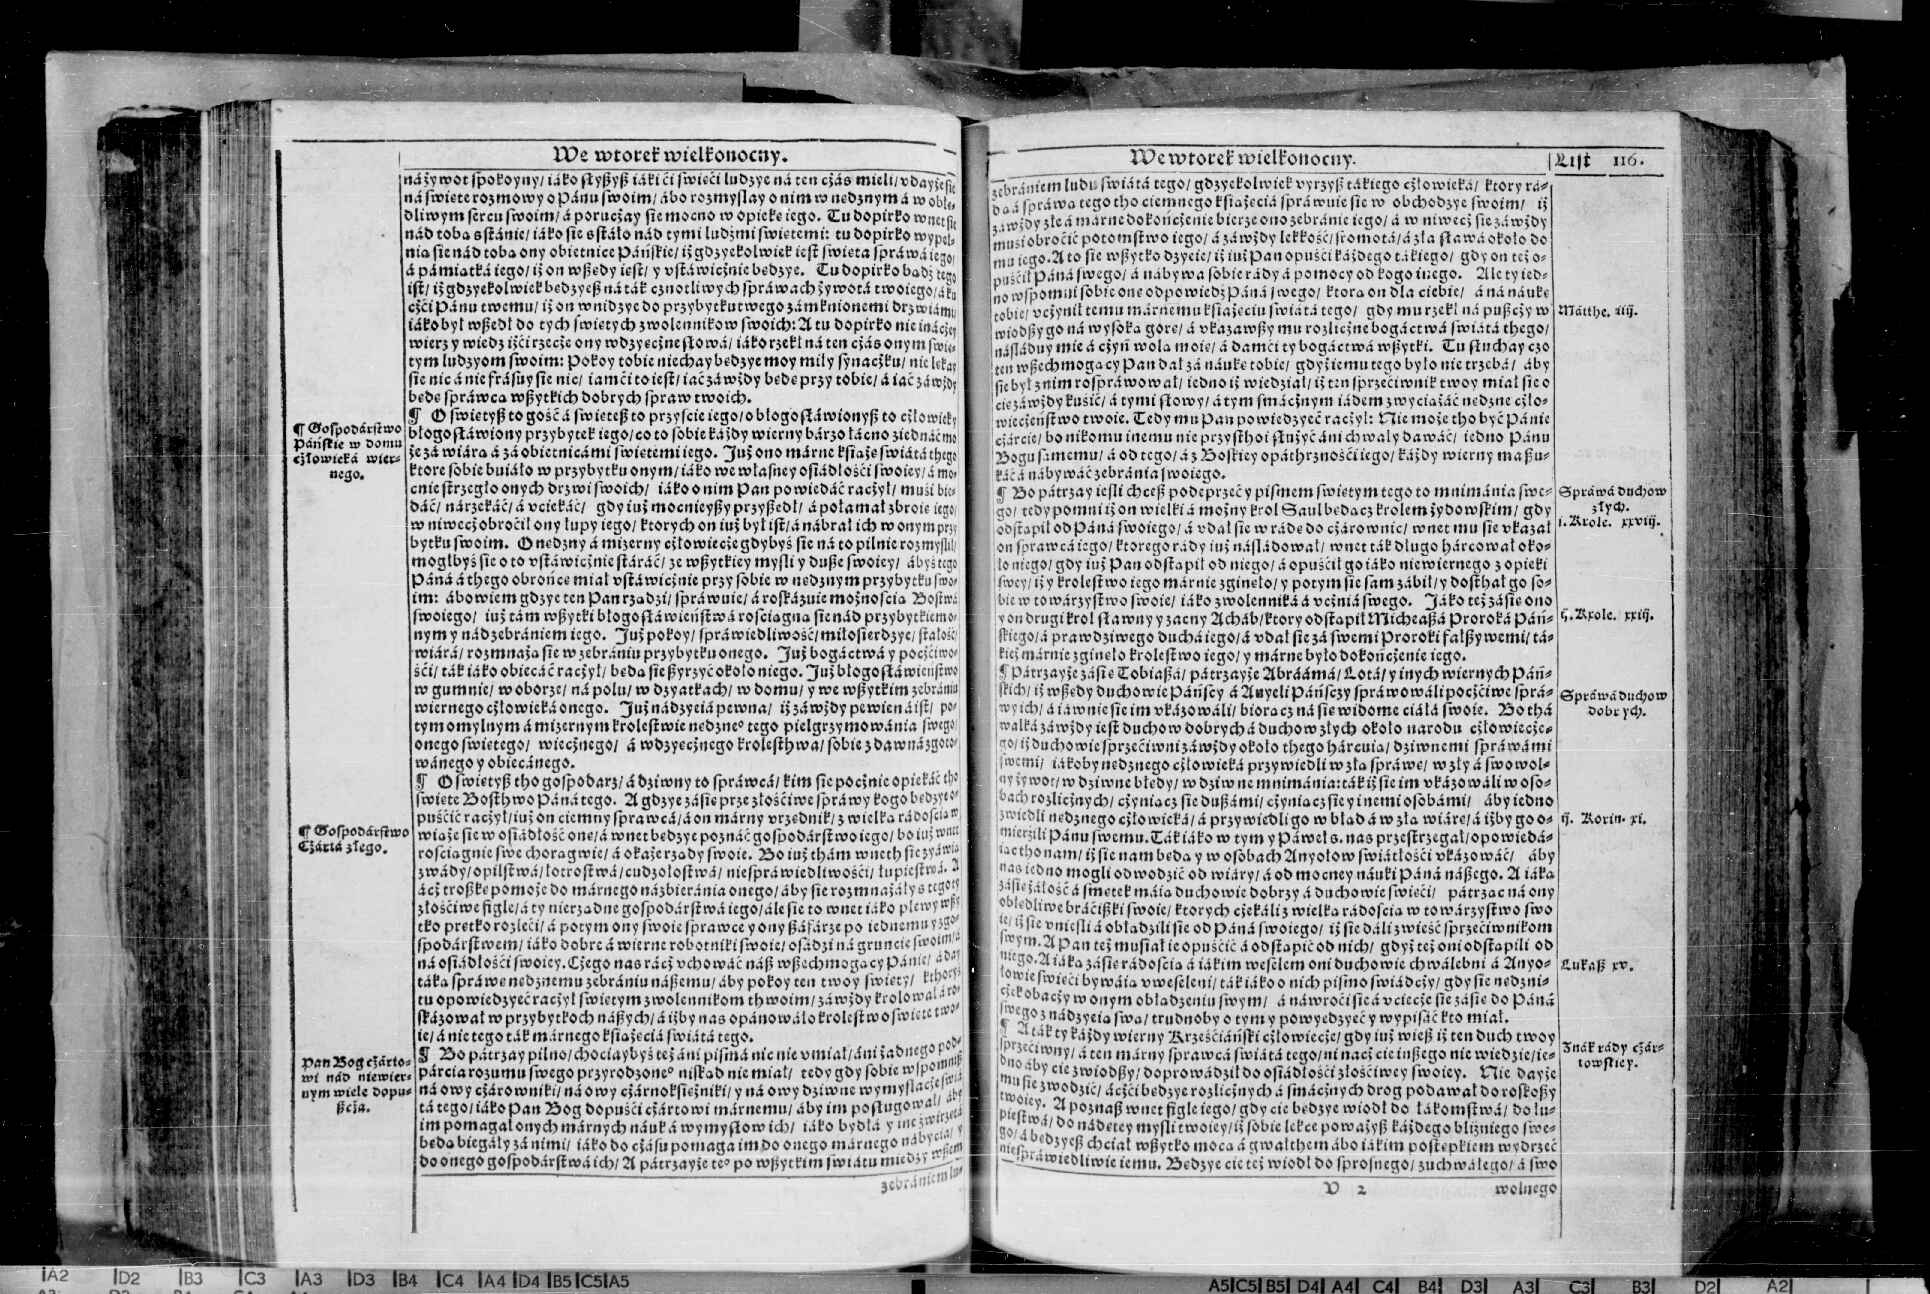 We wtorek wielkonocny.
ná żywot spokoyny/ iáko słyszysz iáki ći święći ludzye ná ten cżás mieli/ vdayże się
ná święte rozmowy o Pánu swoim/ ábo rozmyslay o nim w nędznym á w obłę-
dliwym sercu swoim/ á porucżay się mocno w opiekę iego. Tu dopirko wnet się
nád tobą sstánie/ iáko się sstáło nád tymi ludźmi świętemi: tu dopirko wypeł-
nią się nád tobą ony obietnice Páńskie/ iż gdzyekolwiek iest święta spráwá iego/
á pámiątká iego/ iż on wszędy iest/ y vstáwicżnie będzye. Tu dopirko bądź tego
ist/ iż gdzyekolwiek będzyesz ná ták cznotliwych spráwach żywotá twoiego/ á ku
cżći Pánu twemu/ iż on wnidzye do przybytku twego zámknionemi drzwiámi
iáko był wszedł do tych świętych zwolennikow swoich: A tu dopirko nie inácżey
wierz y wiedz iżći rzecże ony wdzyęcżne słowá/ iáko rzekł ná ten cżás onym świę-
tym ludzyom swoim: Pokoy tobie niechay będzye moy miły synacżku/ nie lękay
się nic á nie frásuy się nic/ iamći to iest/ iáć záwżdy będę przy tobie/ á iáć záwżdy
będę spráwcá wszytkich dobrych spraw twoich.
¶ O świętysz to gość á świętesz to przyśćie iego/ o błogosłáwionysz to cżłowieky
błogosłáwiony przybytek iego/ co to sobie káżdy wierny bárzo łácno ziednáć mo
że zá wiárą á zá obietnicámi świętemi iego. Już ono márne książę świátá thego
ktore sobie buiáło w przybytku onym/ iáko we własney osiádłośći swoiey/ á mo-
cnie strzegło onych drzwi swoich/ iáko o nim Pan powiedáć racżył/ muśi bie-
dáć/ nárzekáć/ á vćiekáć/ gdy iuż mocnieyszy przyszedł/ á połamał zbroię iego/
w niwecż obroćił ony łupy iego/ ktorych on iuż był ist/ á nábrał ich w onym przy
bytku swoim. O nędzny á mizerny cżłowiecże gdybyś się ná to pilnie rozmyślił/
mogłbyś się o to vstáwicżnie stáráć/ ze wszytkiey myśli y dusze swoiey/ ábyś tego
Páná á thego obrońcę miał vstáwicżnie przy sobie w nędznym przybytku swo-
im: ábowiem gdzye ten Pan rządzi/ spráwuie/ á roskázuie możnością Bostwá
swoiego/ iuż tám wszytki błogosłáwieństwá rosćiągną się nád przybytkiem o-
nym y nád zebrániem iego. Już pokoy/ spráwiedliwość/ miłosierdzye/ stałość/
wiárá/ rozmnaża się w zebrániu przybytku onego. Już bogáctwá y pocżćiwo-
śći/ ták iáko obiecáć racżył/ będą się szyrzyć około niego. Już błogosłáwieństwo
w gumnie/ w oborze/ ná polu/ w dzyatkach/ w domu/ y we wszytkim zebrániu
wiernego cżłowieká onego. Już nádzyeiá pewna/ iż záwżdy pewien á ist/ po-
tym omylnym á mizernym krolestwie nędzne° tego pielgrzymowánia swego/
onego świętego/ wiecżnego/ á wdzyęcżnego krolesthwa/ sobie zdawná zgoto-
wánego y obiecánego.
¶ O świętysz tho gospodarz/ á dziwny to spráwcá/ kim się pocżnie opiekáć tho
święte Bosthwo Páná tego. A gdzye zásię prze złośćiwe spráwy kogo będzye o-
puśćić racżył/ iuż on ciemny spráwcá/ á on márny vrzędnik/ z wielką rádośćią w
wiąże się w osiádłość onę/ á wnet będzye poznáć gospodárstwo iego/ bo iuż wnet
rosćiągnie swe chorągwie/ á okaże rządy swoie. Bo iuż thám wneth się zyáwią
zwády/ opilstwá/ łotrostwá/ cudzołostwá/ niespráwiedliwośći/ łupiestwá. A
ácż troszkę pomoże do márnego názbieránia onego/ áby się rozmnażáły s tego ty
złośćiwe figle/ á ty nierządne gospodárstwá iego/ ále się to wnet iáko plewy wszy
tko prętko rozleći/ á potym ony swoie sprawce y ony száfárze po iednemu y z go-
spodárstwem/ iáko dobre á wierne robotniki swoie/ osádzi ná grunćie swoim/ á
ná osiádłośći swoiey. Cżego nas rácż vchowáć nász wszechmogący Pánie/ á day
táką spráwę nędznemu zebrániu nászemu/ áby pokoy ten twoy święty/ kthoryś
tu opowiedzyeć racżył świętym zwolennikom thwoim/ záwżdy krolował á ro-
skázował w przybytkoch nászych/ á iżby nas opánowáło krolestwo święte two-
ie/ á nie tego ták márnego książęciá świátá tego.
¶ Bo pátrzay pilno/ choćiaybyś też áni pismá nic nie vmiał/ áni żadnego pod-
párcia rozumu swego przyrodzone° niskąd nie miał/ tedy gdy sobie wspomnisz
ná owy cżárowniki/ ná owy cżárnoksiężniki/ y ná owy dziwne wymyslácże świá
tá tego/ iáko Pan Bog dopuśći cżártowi márnemu/ áby im posługował/ áby
im pomagał onych márnych náuk á wymysłow ich/ iáko bydłá y ine zwirzętá
będą biegáły zá nimi/ iáko do cżásu pomaga im do onego márnego nábycia/ y
do onego gospodárstwá ich/ A pátrzayże te° po wszytkim świátu między wszem
zebrániem lu-
¶ Gospodárstwo
Páńskie w domu
cżłowieká wier-
nego.
¶ Gospodárstwo
Cżártá złego.
Pan Bog cżárto-
wi nád niewier-
nym wiele dopu-
szcża.
We wtorek wielkonocny.
List 116.
zebrániem ludu świátá tego/ gdzyekolwiek vyrzysz tákiego cżłowieká/ ktory rá-
dá á spráwá tego tho ciemnego książęciá spráwuie się w obchodzye swoim/ iż
záwżdy złe á márne dokońcżenie bierze ono zebránie iego/ á w niwecż się záwżdy
muśi obroćić potomstwo iego/ á záwżdy lekkość/ sromotá/ á zła sławá około do
mu iego. A to się wszytko dzyeie/ iż iuż Pan opuśći káżdego tákiego/ gdy on też o-
puśćił Páná swego/ á nábywa sobie rády á pomocy od kogo inego. Ale ty ied-
no wspomni sobie onę odpowiedź Páná swego/ ktorą on dla ciebie/ á ná náukę
tobie/ vcżynił temu márnemu książęciu świátá tego/ gdy mu rzekł ná puszcży w
wiodszy go ná wysoką gorę/ á vkazawszy mu rozlicżne bogáctwá świátá thego/
násláduy mię á cżyń wolą moię/ á damći ty bogáctwá wszytki. Tu słuchay czo
ten wszechmogący Pan dał zá náukę tobie/ gdyż iemu tego było nie trzebá/ áby
się był z nim rospráwował/ iedno iż wiedział/ iż ten sprzećiwnik twoy miał się o
cię záwżdy kuśić/ á tymi słowy/ á tym smácżnym iádem zwyciáżáć nędzne cżło-
wiecżeństwo twoie. Tedy mu Pan powiedzyeć racżył: Nie może tho być Pánie
cżárćie/ bo nikomu inemu nie przysthoi służyć áni chwały dawáć/ iedno Pánu
Bogu sámemu/ á od tego/ á z Boskiey opáthrznośći iego/ káżdy wierny ma szu-
káć á nábywáć zebránia swoiego.
¶ Bo pátrzay iesli chcesz podeprzeć y pismem świętym tego to mnimánia swe-
go/ tedy pomni iż on wielki á możny krol Saul będąc z krolem żydowskim/ gdy
odstąpił od Páná swoiego/ á vdał się w rádę do cżárownic/ wnet mu się vkazał
on spráwcá iego/ ktorego rády iuż násládował/ wnet ták długo hárcował oko-
ło niego/ gdy iuż Pan odstąpił od niego/ á opuśćił go iáko niewiernego z opieki
swey/ iż y krolestwo iego márnie zginęło/ y potym się sam zábił/ y dosthał go so-
bie w towárzystwo swoie/ iáko zwolenniká á vcżniá swego. Jáko też zásię ono
y on drugi krol sławny y zacny Acháb/ ktory odstąpił Micheaszá Proroká Páń-
skiego/ á prawdziwego duchá iego/ á vdał się zá swemi Proroki fałszywemi/ tá-
kież márnie zginęło krolestwo iego/ y márne było dokońcżenie iego.
¶ Pátrzayże zásię Tobiaszá/ pátrzayże Abráámá/ Lotá/ y inych wiernych Páń-
skich/ iż wszędy duchowie Páńscy á Anyeli Páńsczy spráwowáli pocżćiwe sprá-
wy ich/ á iáwnie się im vkázowáli/ biorącz ná się widome ciáłá swoie. Bo thá
walká záwżdy iest duchow dobrych á duchow złych około narodu cżłowiecże-
go/ iż duchowie sprzećiwni záwżdy około thego hárcuią/ dziwnemi spráwámi
swemi/ iákoby nędznego cżłowieká przywiedli w złą spráwę/ w zły á swowol-
ny żywot/ w dziwne błędy/ w dziwne mnimánia: ták iż się im vkázowáli w oso-
bach rozlicżnych/ cżyniącz się duszámi/ cżyniącz się y inemi osobámi/ áby iedno
zwiedli nędznego cżłowieká/ á przywiedli go w błąd á w złą wiárę/ á iżby go o-
mierźili Pánu swemu. Ták iáko w tym y Páweł s. nas przestrzegał/ opowiedá-
iąc tho nam/ iż się nam będą y w osobach Anyołow świátłośći vkázowáć/ áby
nas iedno mogli odwodzić od wiáry/ á od mocney náuki Páná nászego. A iáką
zásię żáłość á smętek máią duchowie dobrzy á duchowie święći/ pátrząc ná ony
obłędliwe bráćiszki swoie/ ktorych cżekáli z wielką rádośćią w towárzystwo swo
ie/ iż się vnieśli á obłądzili się od Páná swoiego/ iż się dáli zwieść sprzećiwnikom
swym. A Pan też musiał ie opuśćić á odstąpić od nich/ gdyż też oni odstąpili od
niego. A iáką zásię rádośćią á iákim weselem oni duchowie chwalebni á Anyo-
łowie święći bywáią vweseleni/ ták iáko o nich pismo świádcży/ gdy się nędzni-
cżek obacży w onym obłądzeniu swym/ á náwroći się á vciecże się zásię do Páná
swego z nádzyeią swą/ trudnoby o tym y powyedzyeć y wypisáć kto miał.
¶ A ták ty káżdy wierny Krześćiáński cżłowiecże/ gdy iuż wiesz iż ten duch twoy
sprzećiwny/ á ten márny spráwcá świátá tego/ ni nacż cię inszego nie wiedzie/ ie-
dno áby cię zwiodszy/ doprowádził do osiádłośći złośćiwey swoiey. Nie dayże
mu się zwodzić/ ácżći będzye rozlicżnych á smácżnych drog podawał do roskoszy
twoiey. A poznasz wnet figle iego/ gdy cię będzye wiodł do łákomstwá/ do łu-
piestwá/ do nádętey myśli twoiey/ iż sobie lekce poważysz káżdego bliźniego swe-
go/ á będzyesz chciał wszytko mocą á gwałthem ábo iákim postępkiem wydrzeć
niespráwiedliwie iemu. Będzye cię też wiodł do sprosnego/ zuchwáłego/ á swo
V 2
wolnego
Mátthe. iiij.
Spráwá duchow
złych.
i. Krole. xxviij.
ij. Krole. xxiij.
Spráwá duchow
dobrych.
ij. Korin. xi.
Lukasz xv.
Znák rády cżár-
towskiey.
A2 D2 B3 C3 A3 D3 B4 C4 A4 D4 B5 C5 A5
A5 C5 B5 D4 A4 C4 B4 D3 A3 C3 B3 D2 A2